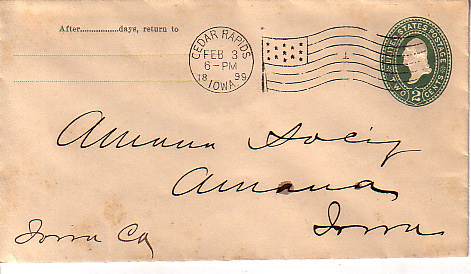 After....................days, return to
CEDAR RAPIDS
FEB 3
6-PM
18 99
IOWA
1
UNITED STATES POSTAGE
TWO 2 CENTS
Amana Society
Amana
Iowa
Iowa Co